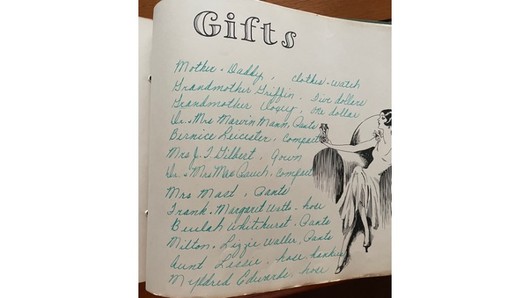 Gifts
Mother - Daddy, clothes - watch
Grandmother Griffin, Five dollars
Grandmother, One dollar
Dr. - Mrs Marvin Mann, Pants
Bernice Leicester, Compact
Mrs J. T. Gilbert, Gown
Dr. - Mrs Mac Bauch, Compact
Mrs Mast, Pants
Frank - Margaret Watts - hose
Beulah Whitehurst - Pants
Milton - Lizzie Waller, Pants
Aunt Lessie, hose hankie
Myldred Edwards, hose